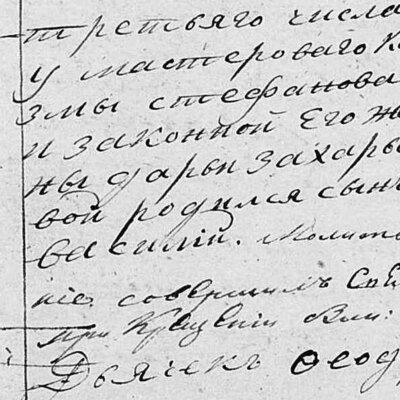 третьяго числа
у мастероваго К
змы стефанова
и законной Его же
ны дарьи захарье
вой родился сынъ
василий. Молитв
ніе совершилъ Свя
при Крещеніи были:
Дьячекъ Ѳеод